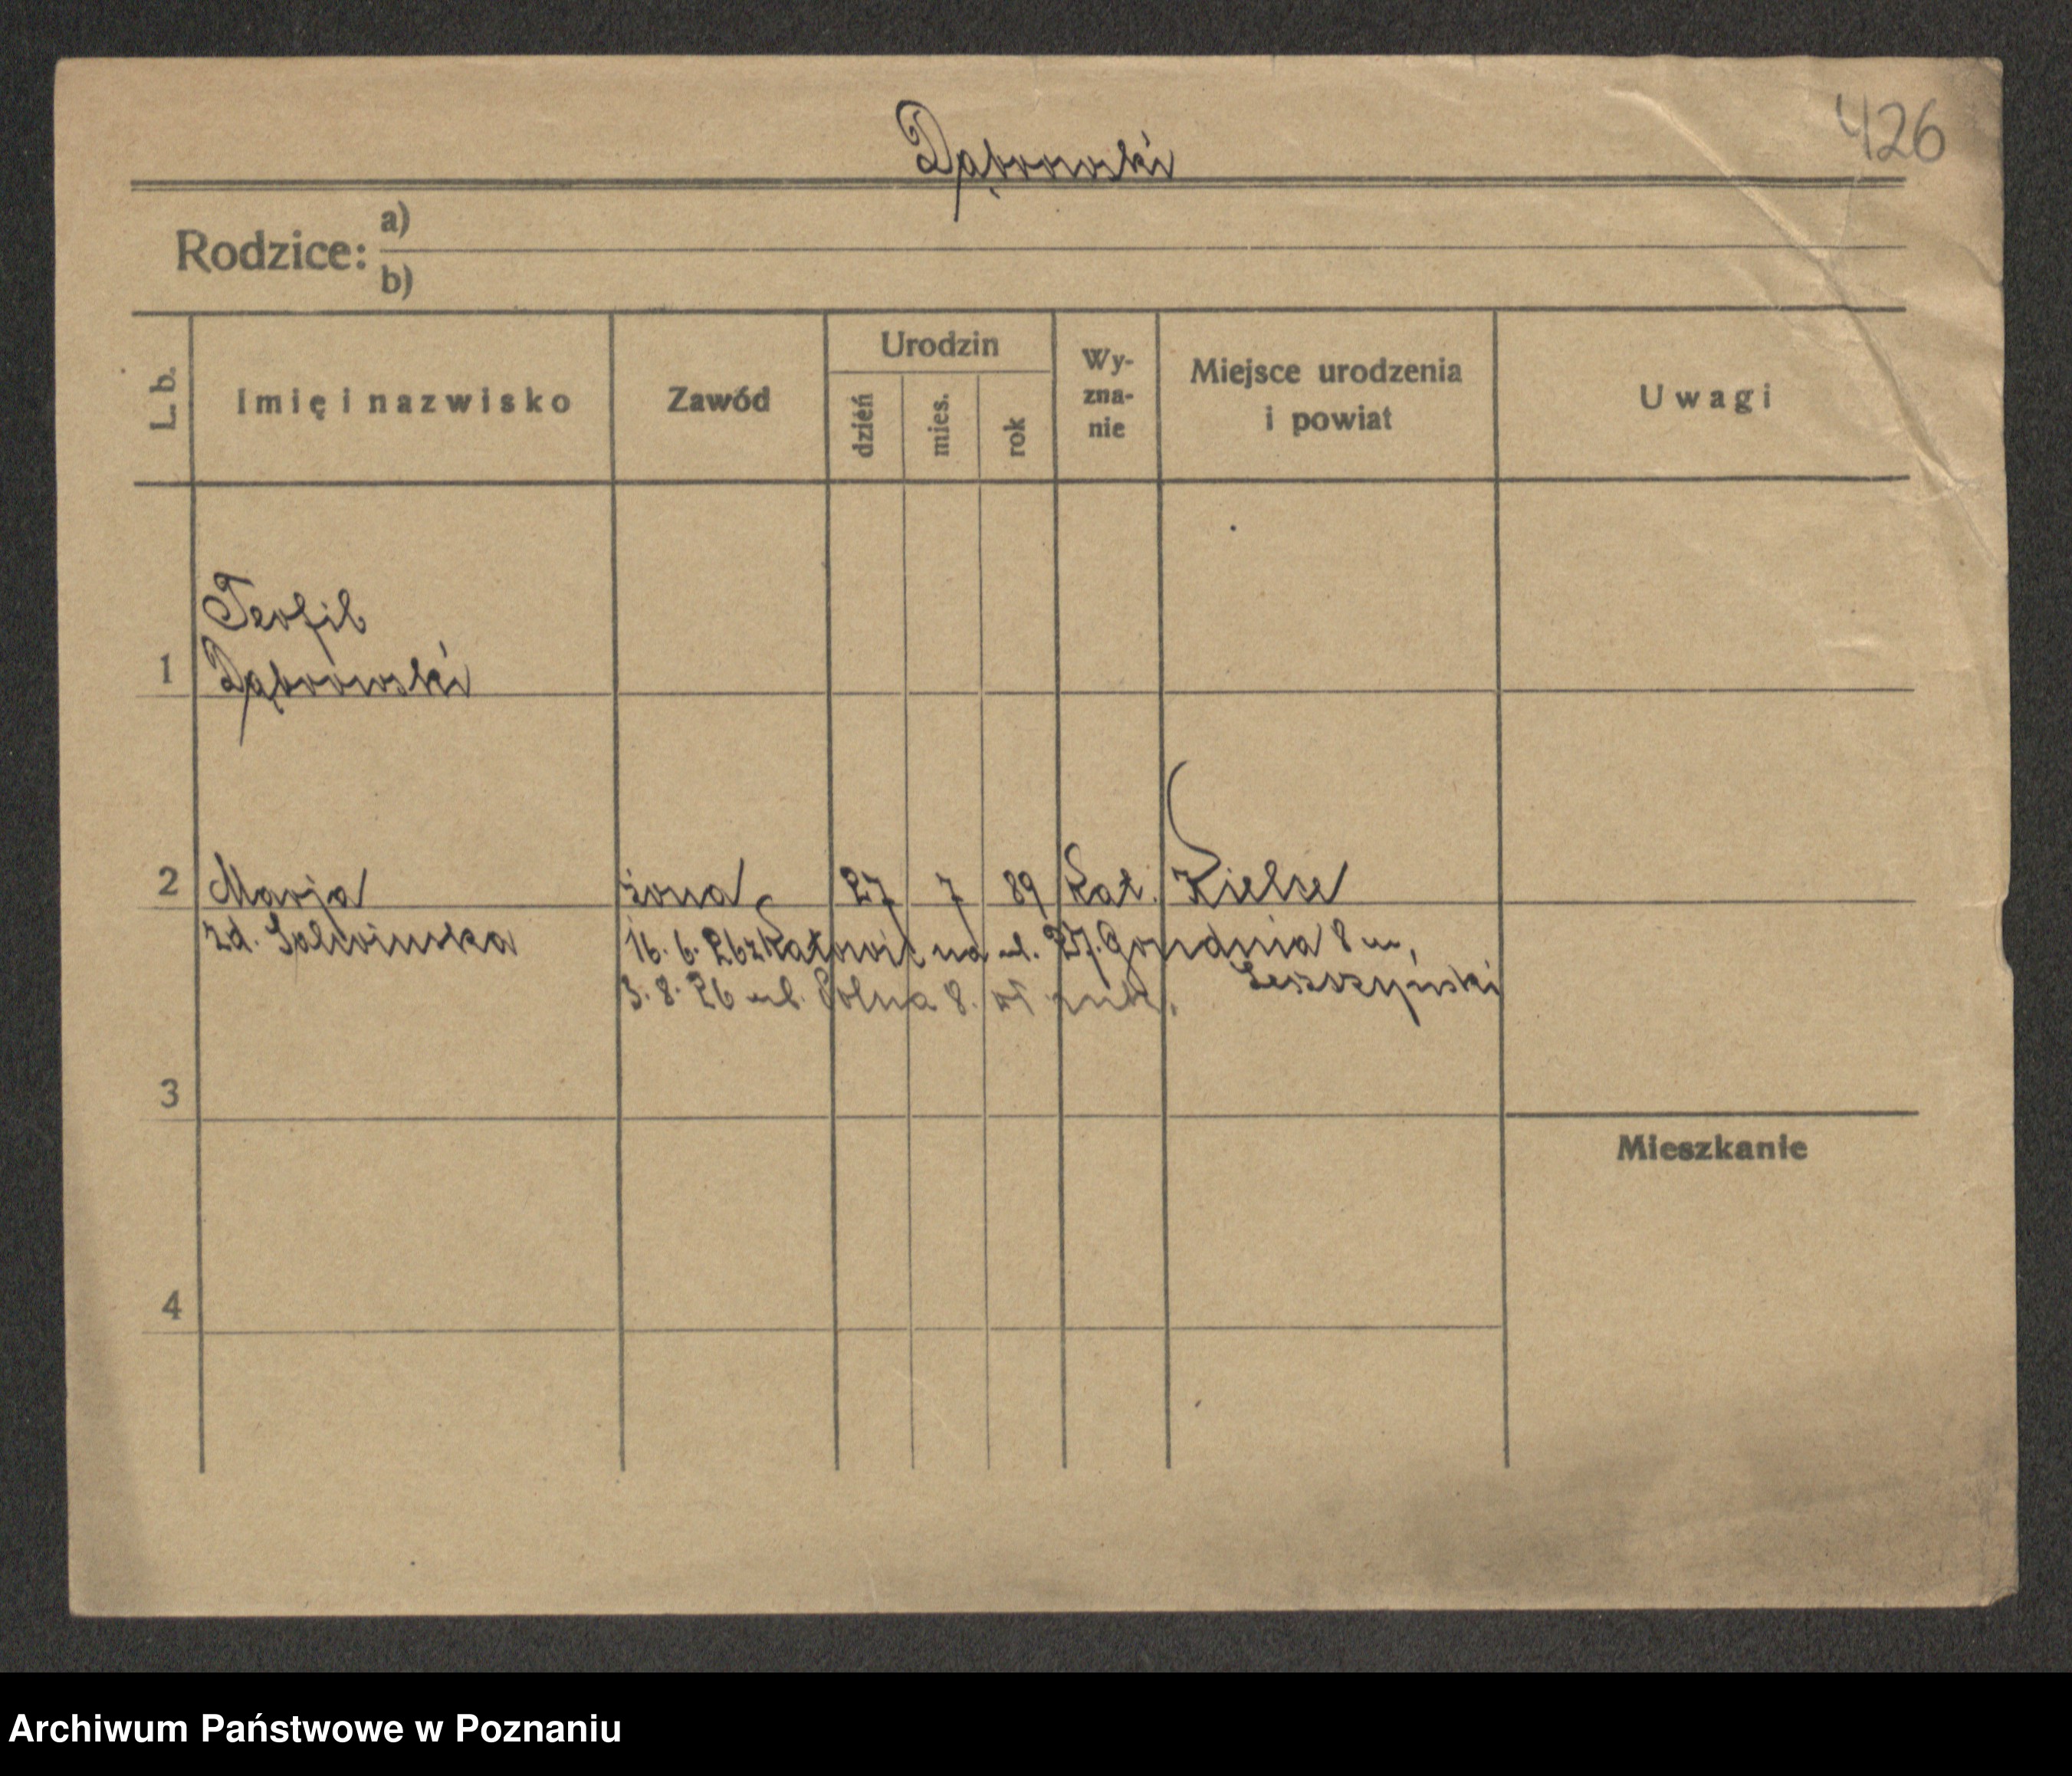 426
Dąbrowski
Rodzice: a)
b)
L. b.
Imię i nazwisko
Zawód
Urodzin
dzień
mies.
rok
Wy-
zna-
nie
Miejsce urodzenia
i powiat
Uwagi
Teofil
1 Dąbrowski
2 Marja żona 27 7 89 kat. Kielce
zd. 16. 6. 26 z Katowic na ul. 27. Grudnia 8 m,
Leszczyński
3. 8. 26 ul. Polna 8.
3
Mieszkanie
4
Archiwum Państwowe w Poznaniu